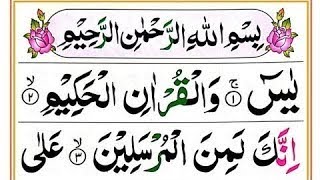 بِسْمِ اللهِ الرَّحْمٰنِ الرَّحِيْمِ
يٰسٓ ۚ﴿۱﴾ وَالْقُرْاٰنِ الْحَكِيْمِ ۙ﴿۲﴾
اِنَّكَ لَمِنَ الْمُرْسَلِيْنَ ۙ﴿۳﴾ عَلٰى